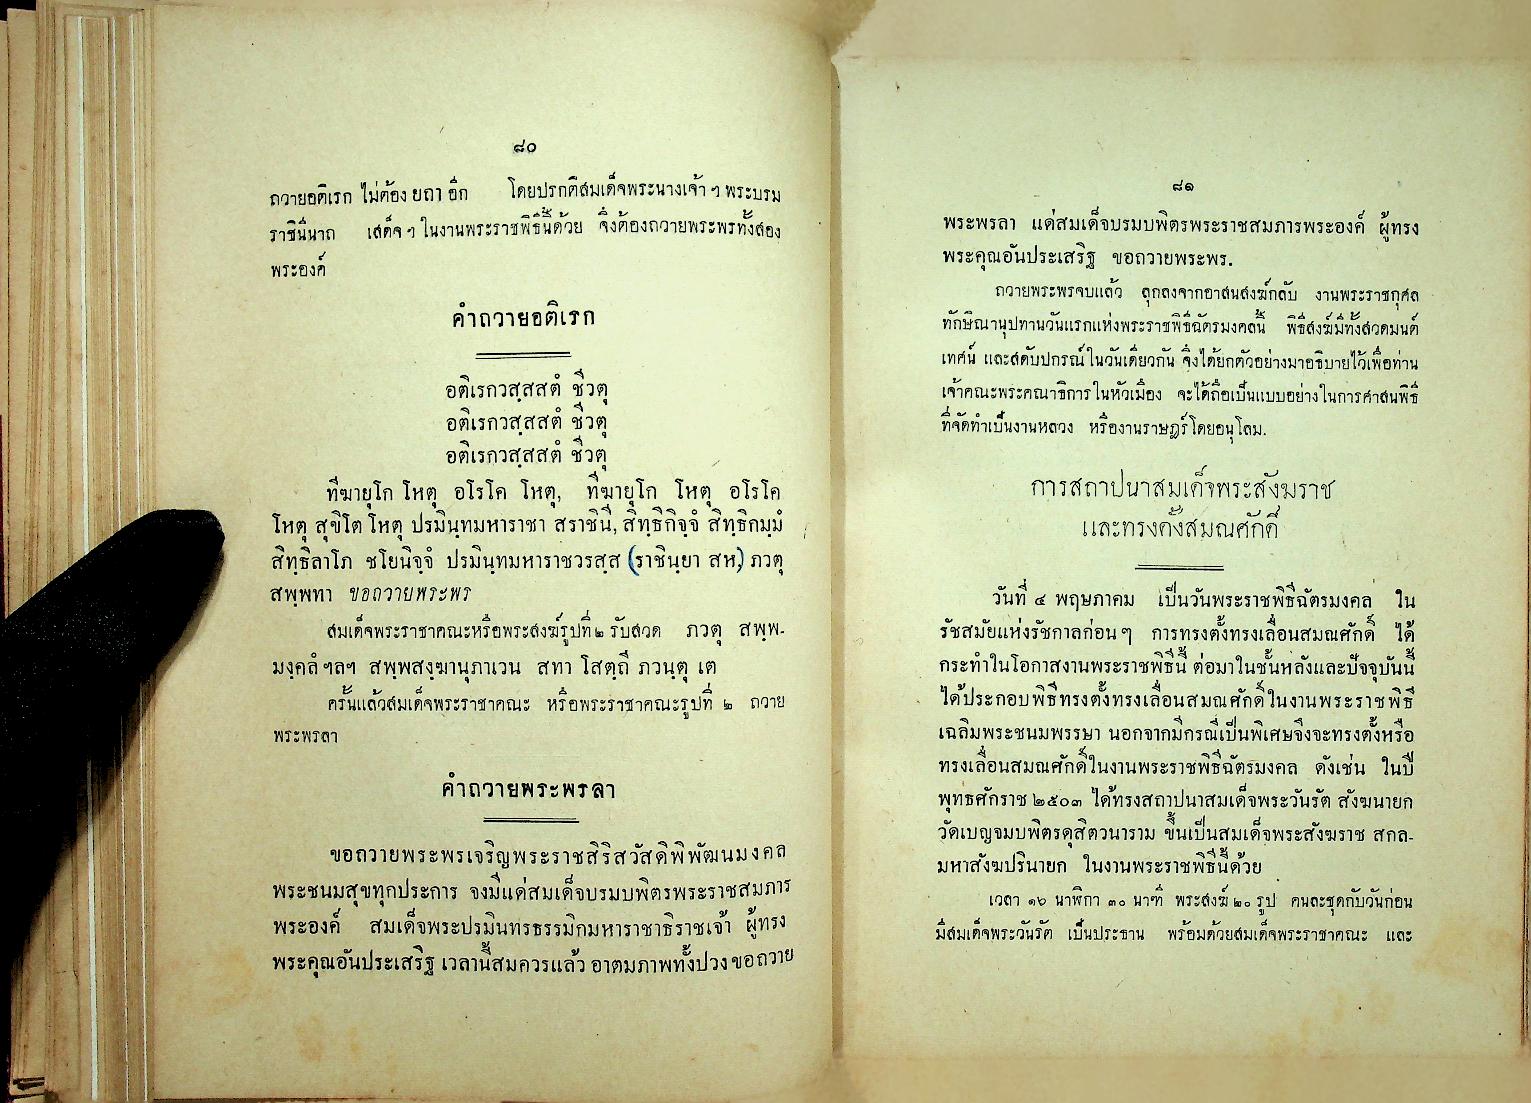 ๘๐
ถวายอติเรก ไม่ต้อง ยถา อีก โดยปรกติสมเด็จพระนางเจ้า ฯ พระบรม
ราชินีนาถ เสด็จ ฯ ในงานพระราชพิธีนี้ด้วย จึ่งต้องถวายพระพรทั้งสอง
พระองค์
คำถวายอติเรก
อติเรกวสฺสสตํ ชีวตุ
อติเรกวสฺสสตํ ชีวตุ
อติเรกวสฺสสตํ ชีวตุ
ทีฆายุโก โหตุ อโรโค โหตุ, ทีฆายุโก โหตุ อโรโค
โหตุ สุขิโต โหตุ ปรมินฺทมหาราชา สราชินี, สิทฺธิกิจฺจํ สิทฺธิกมฺมํ
สิทฺธิลาโภ ชโยนิจฺจํ ปรมินฺทมหาราชวรสฺส (ราชินฺยา สห) ภวตุ
สพฺพทา ขอถวายพระพร
สมเด็จพระราชาคณะหรือพระสงฆ์รูปที่ ๒ รับสวด ภวตุ สพฺพ-
มงฺคลํ ฯลฯ สพฺพสงฺฆานุภาเวน สทา โสตฺถี ภวนฺตุ เต
ครั้นแล้วสมเด็จพระราชาคณะ หรือพระราชาคณะรูปที่ ๒ ถวาย
พระพรลา
คำถวายพระพรลา
ขอถวายพระพรเจริญพระราชสิริสวัสดิพิพัฒนมงคล
พระชนมสุขทุกประการ จงมีแด่สมเด็จบรมบพิตรพระราชสมภาร
พระองค์ สมเด็จพระปรมินทรธรรมิกมหาราชาธิราชเจ้า ผู้ทรง
พระคุณอันประเสริฐ เวลานี้สมควรแล้ว อาตมภาพทั้งปวงขอถวาย
๘๑
พระพรลา แด่สมเด็จบรมบพิตรพระราชสมภารพระองค์ ผู้ทรง
พระคุณอันประเสริฐ ขอถวายพระพร.
ถวายพระพรจบแล้ว ลุกลงจากอาสนสงฆ์กลับ งานพระราชกุศล
ทักษิณานุปทานวันแรกแห่งพระราชพิธีฉัตรมงคลนี้ พิธีสงฆ์มีทั้งสวดมนต์
เทศน์ และสดับปกรณ์ในวันเดียวกัน จึ่งได้ยกตัวอย่างมาอธิบายไว้เพื่อท่าน
เจ้าคณะพระคณาธิการในหัวเมือง จะได้ถือเป็นแบบอย่างในการศาสนพิธี
ที่จัดทำเป็นงานหลวง หรืองานราษฎร์โดยอนุโลม.
การสถาปนาสมเด็จพระสังฆราช
และทรงตั้งสมณศักดิ์
วันที่ ๔ พฤษภาคม เป็นวันพระราชพิธีฉัตรมงคล ใน
รัชสมัยแห่งรัชกาลก่อนๆ การทรงตั้งทรงเลื่อนสมณศักดิ์ ได้
กระทำในโอกาสงานพระราชพิธีนี้ ต่อมาในชั้นหลังและปัจจุบันนี้
ได้ประกอบพิธีทรงตั้งทรงเลื่อนสมณศักดิ์ในงานพระราชพิธี
เฉลิมพระชนมพรรษา นอกจากมีกรณีเป็นพิเศษจึงจะทรงตั้งหรือ
ทรงเลื่อนสมณศักดิ์ในงานพระราชพิธีฉัตรมงคล ดังเช่น ในปี
พุทธศักราช ๒๕๐๓ ได้ทรงสถาปนาสมเด็จพระวันรัต สังฆนายก
วัดเบญจมบพิตรดุสิตวนาราม ขึ้นเป็นสมเด็จพระสังฆราช สกล-
มหาสังฆปรินายก ในงานพระราชพิธีนี้ด้วย
เวลา ๑๖ นาฬิกา ๓๐ นาฑี พระสงฆ์ ๒๐ รูป คนละชุดกับวันก่อน
มีสมเด็จพระวันรัต เป็นประธาน พร้อมด้วยสมเด็จพระราชาคณะ และ